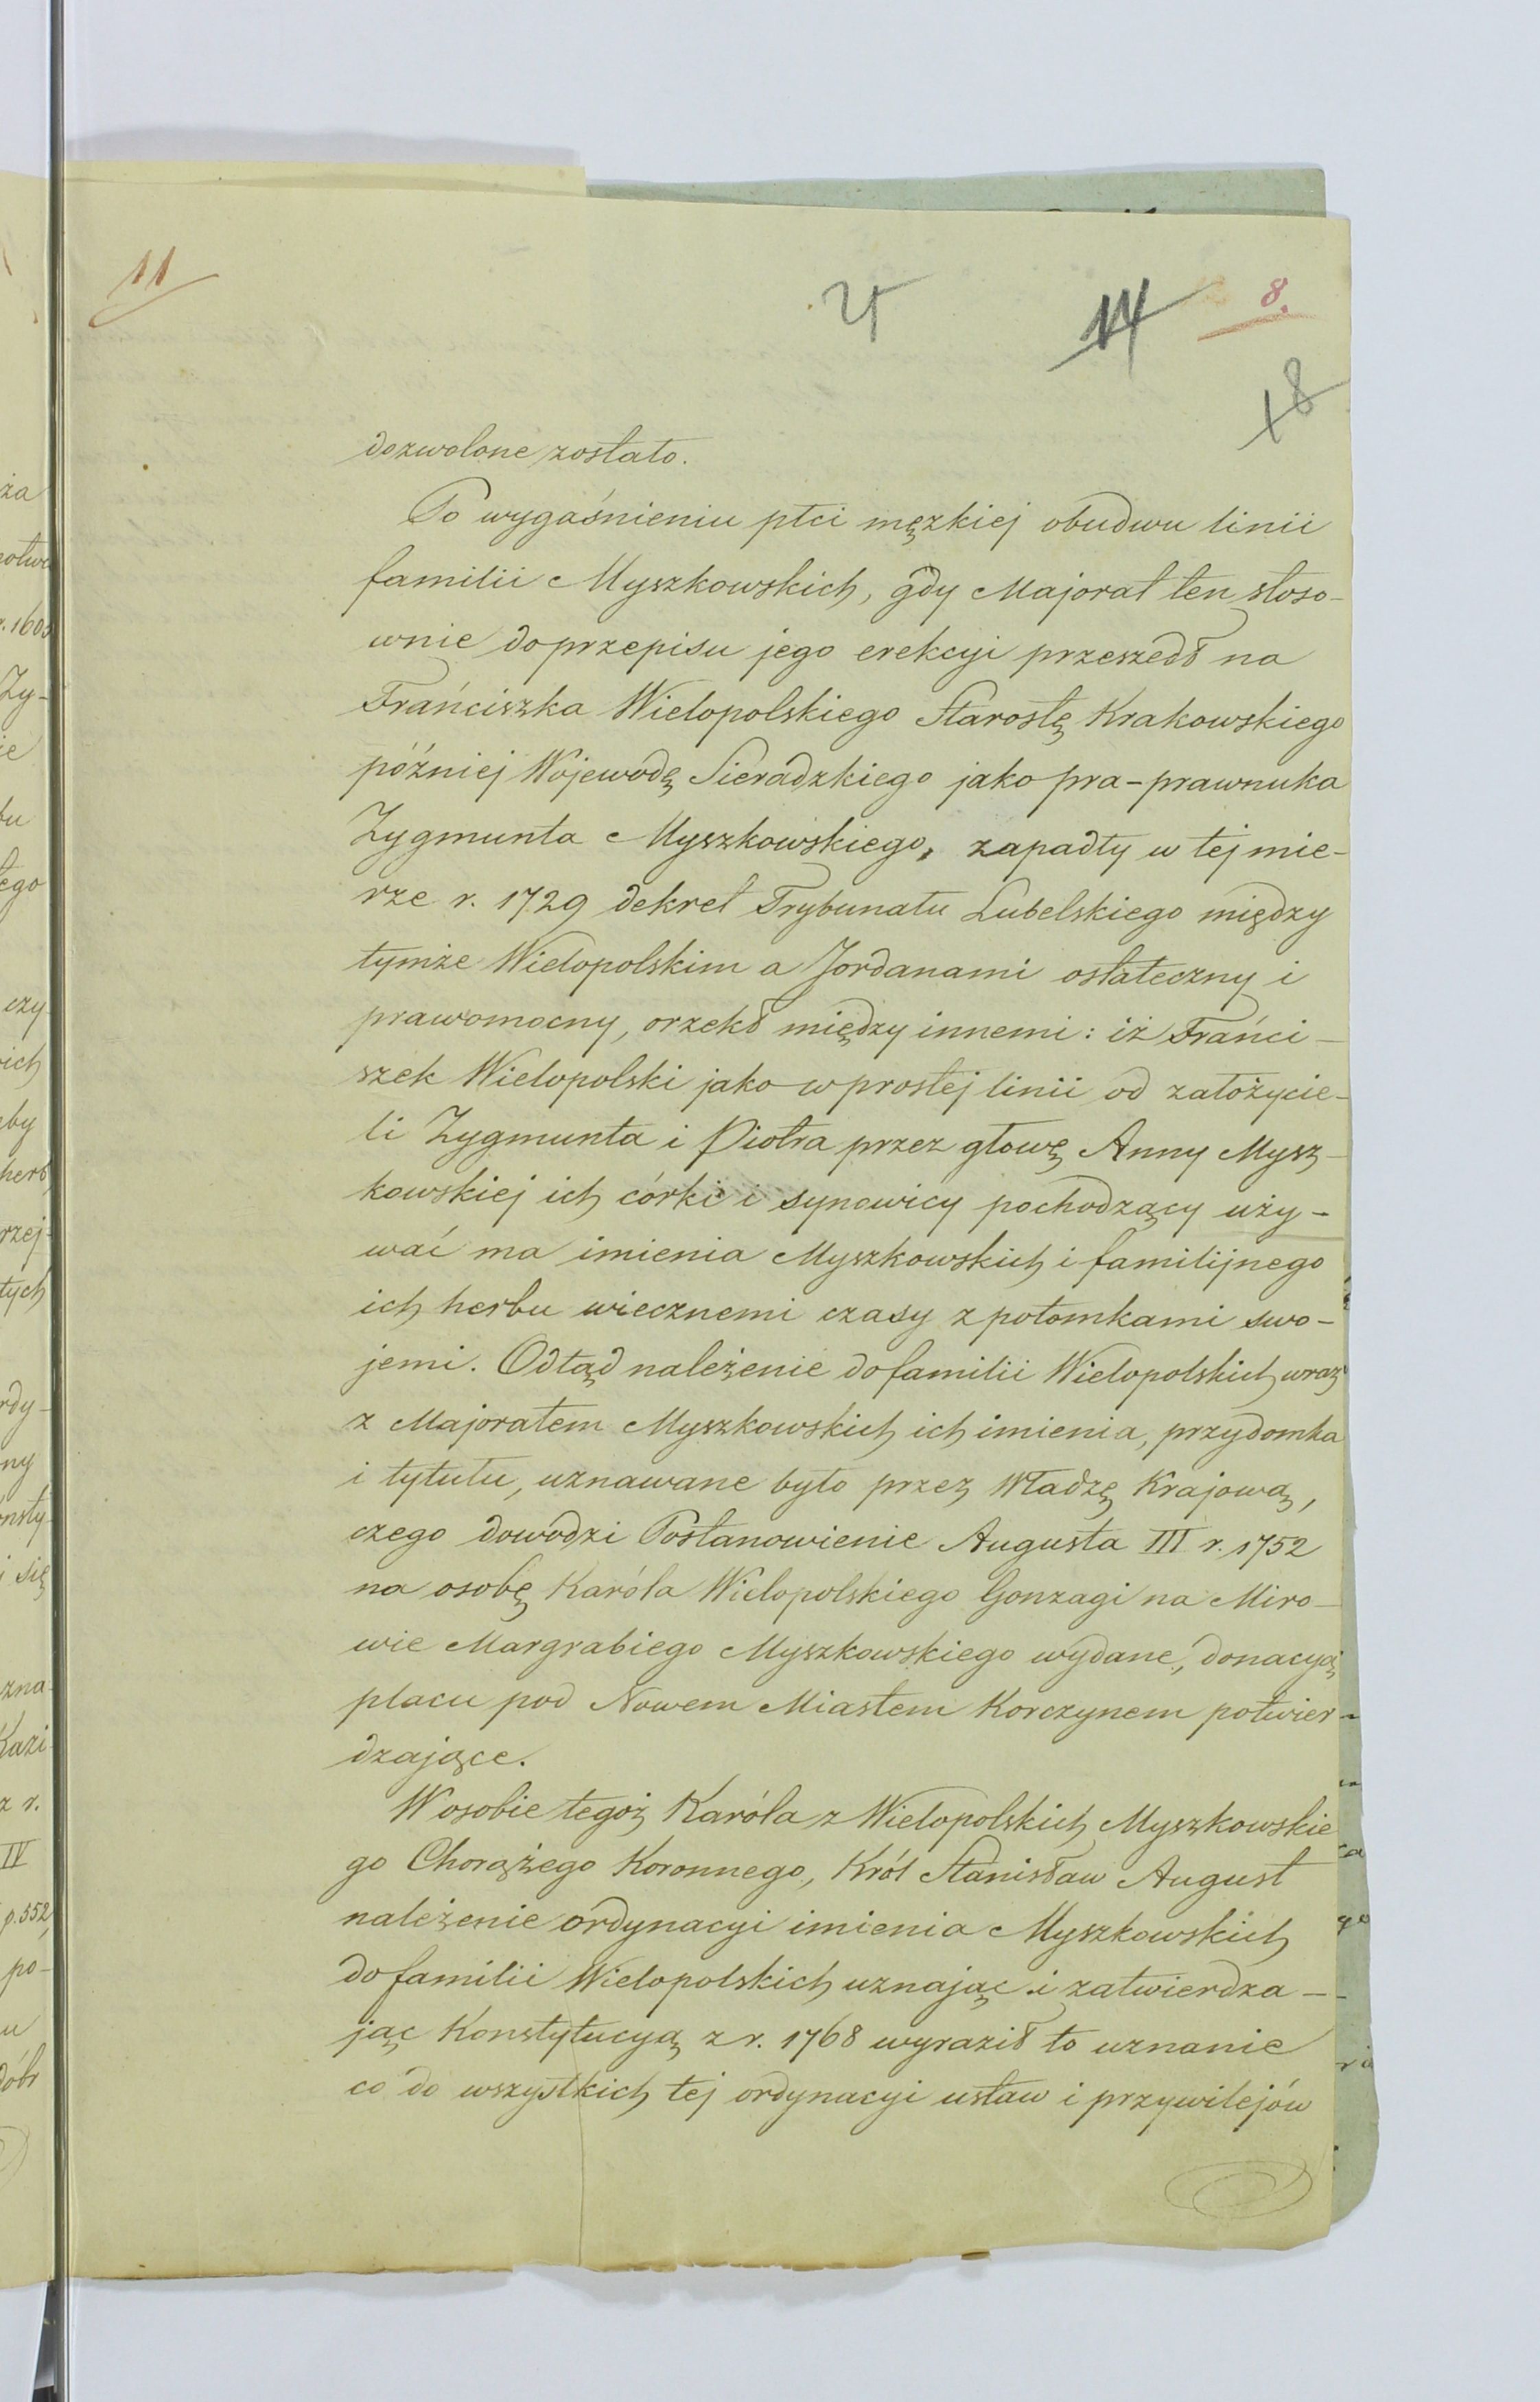 11
14
8.
18
dozwolone zostało.
Po wygaśnieniu płci męzkiej obudwu linii
familii Myszkowskich, gdy Majorat ten stoso-
wnie do przepisu jego erekcyi przeszedł na
Frańciszka Wielopolskiego Starostę Krakowskiego
później Wojewodę Sieradzkiego jako pra-prawnuka
Zygmunta Myszkowskiego, zapadły w tej mie-
rze r. 1729 dekret Trybunału Lubelskiego między
tymże Wielopolskim a Jordanami ostateczny i
prawomocny, orzekł między innemi: iż Frańci-
szek Wielopolski jako w prostej linii od założycie-
li Zygmunta i Piotra przez głowę Anny Mysz-
kowskiej ich córki i synowicy pochodzący uży-
wać ma imienia Myszkowskich i familijnego
ich herbu wiecznemi czasy z potomkami swo-
jemi. Odtąd należenie do familii Wielopolskich wraz
z Majoratem Myszkowskich ich imienia, przydomka
i tytułu, uznawane było przez Władzę Krajową,
czego dowodzi Postanowienie Augusta III r. 1752
na osobę Karóla Wielopolskiego Gonzagi na Miro-
wie Margrabiego Myszkowskiego wydane, donacyą
placu pod Nowem Miastem Korczynem potwier-
dzające.
W osobie tegoż Karóla z Wielopolskich Myszkowskie
go Chorążego Koronnego, Król Stanisław August
należenie ordynacyi imienia Myszkowskich
do familii Wielopolskich uznając i zatwierdza-
jąc Konstytucyą z r. 1768 wyraził to uznanie
co do wszystkich tej ordynacyi ustaw i przywilejów